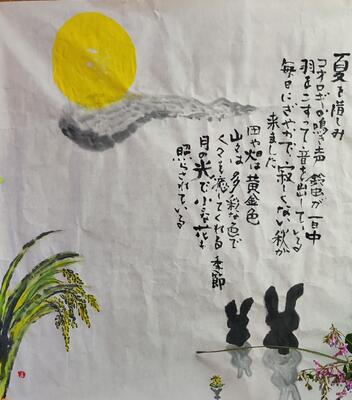 夏を惜しみ
コオロギの鳴き声 鈴虫が一日中
羽をこすって音を出している
毎日にぎやかで寂しくない秋が
来ました
田や畑は黄金色
山々は多彩な色で
人々を癒してくれる季節
月の光で小さな花も
照らされている